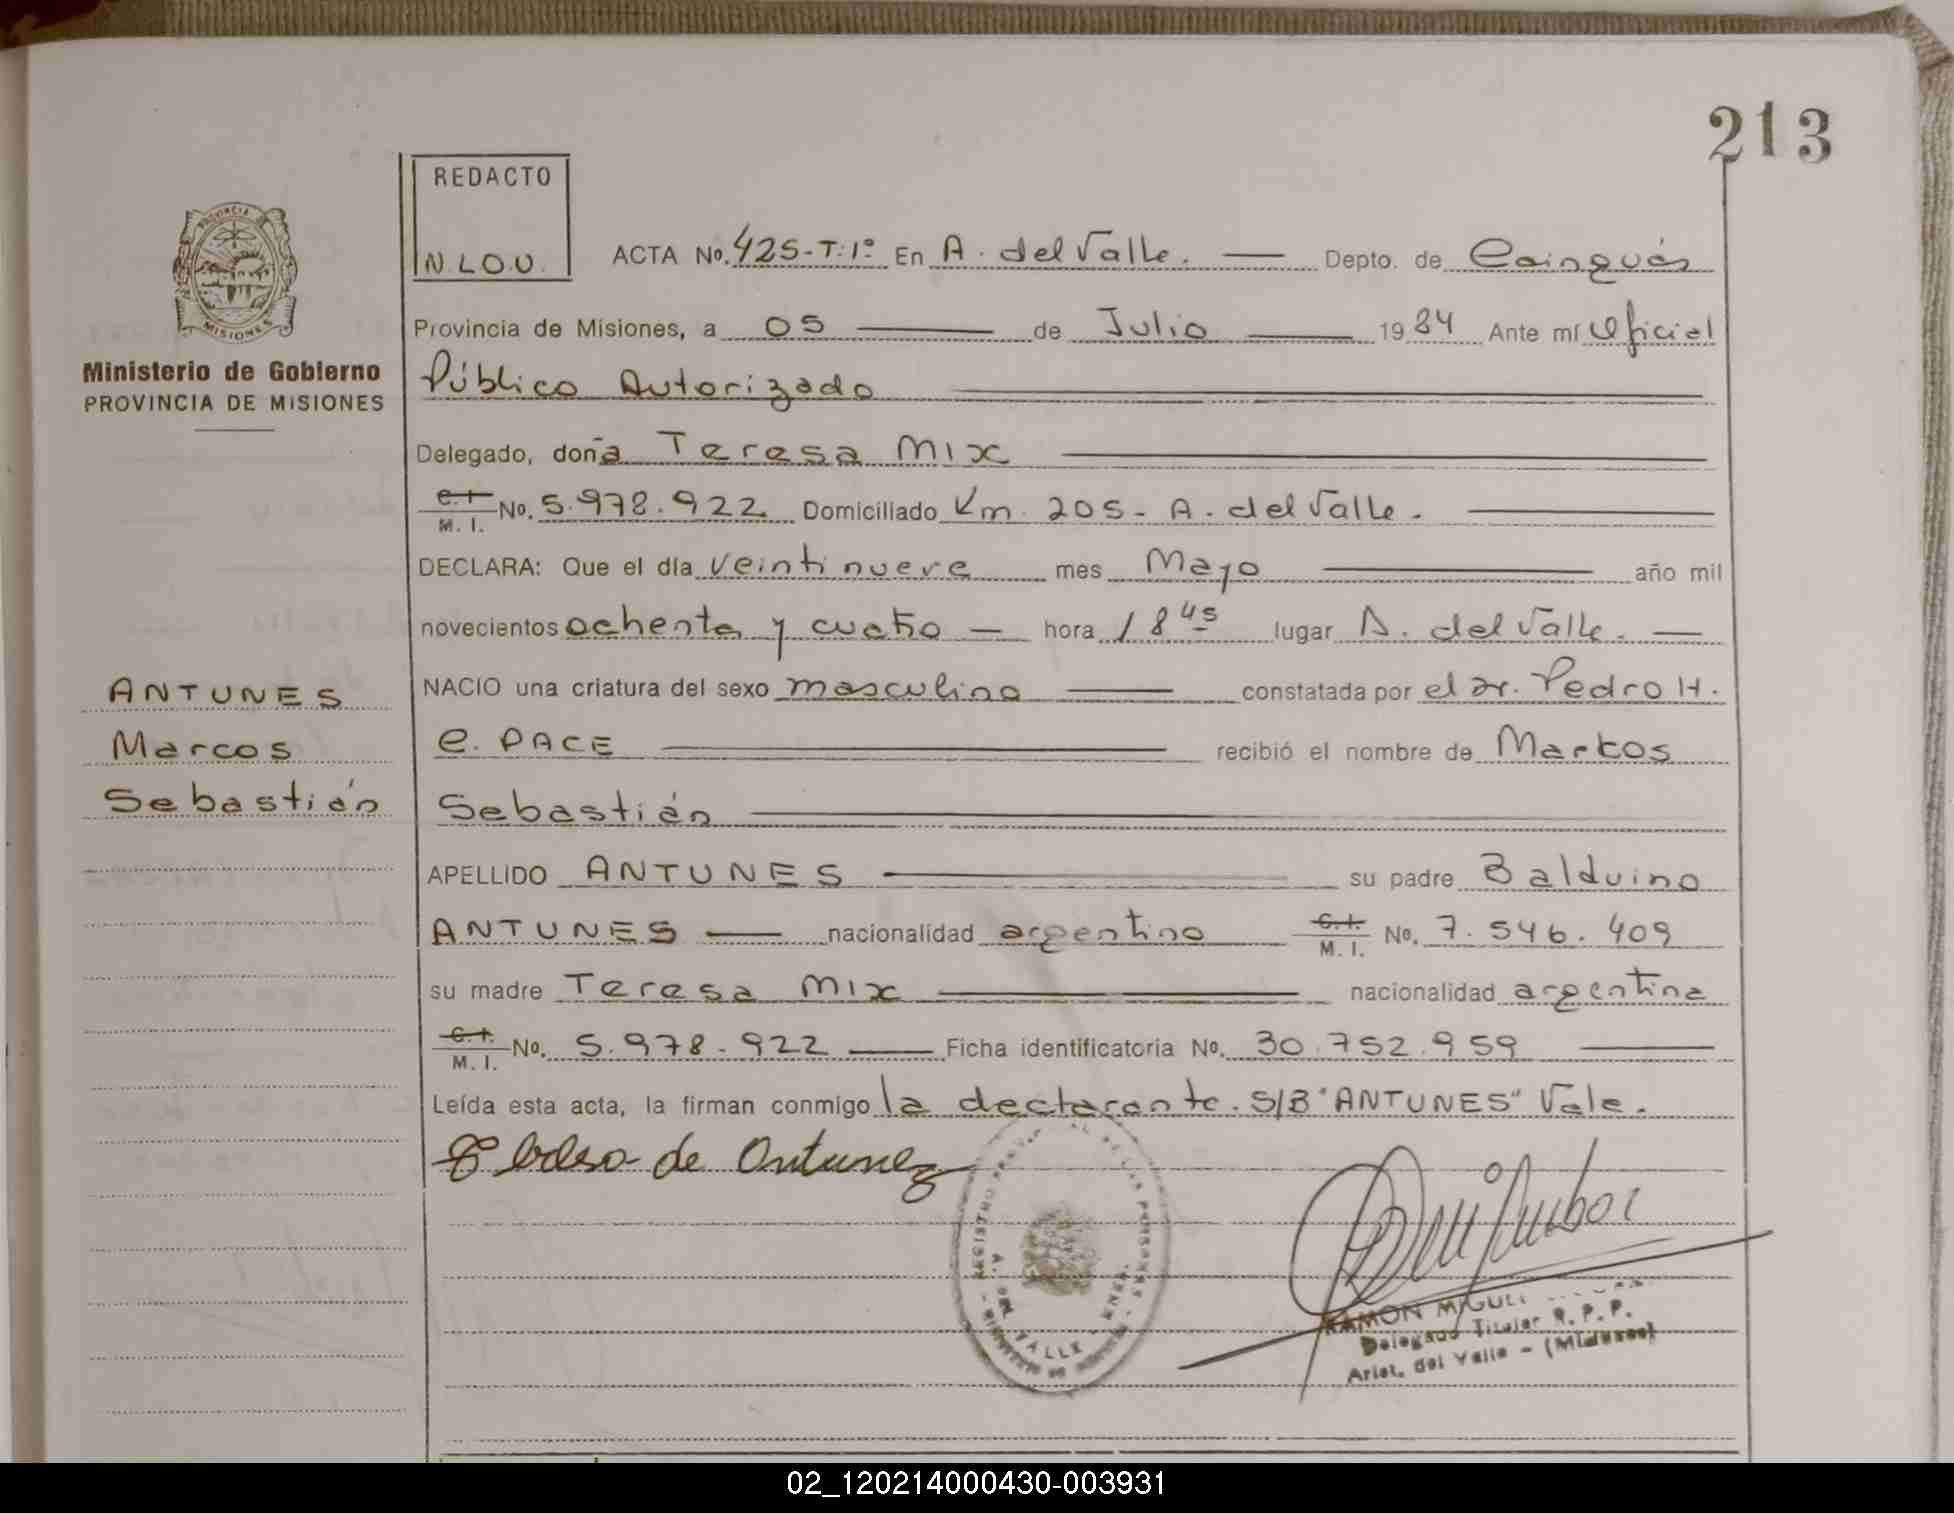 213
REDACTO
N.L.O.U.
ACTA No. 425-T:1º En A. del Valle. Depto. de Cainguás
Provincia de Misiones, a 05 de Julio 1984 Ante mí Oficial
Ministerio de Gobierno
PROVINCIA DE MISIONES
Público Autorizado
Delegado, doña Teresa MIX
C.I. M. I. No. 5.978.922 Domiciliado Km. 205- A. del Valle.
DECLARA: Que el día veintinueve mes Mayo año mil
novecientos ochenta y cuatro hora 18 45 lugar A. del Valle.
NACIO una criatura del sexo masculino constatada por el Dr. Pedro H.
C. PACE recibió el nombre de Markos
Sebastián
ANTUNES
Marcos
Sebastián
APELLIDO ANTUNES su padre Balduino
ANTUNES nacionalidad argentino C.I. M. I. No. 7.546.409
su madre Teresa MIX nacionalidad argentina
C.I. M. I. No. 5.978.922 Ficha identificatoria No. 30.752.959
Leída esta acta, la firman conmigo la declarante. S/B "ANTUNES" Vale.
de Antunez
RAMON MIGUEL
Delegado Titular R.P.P.
Arist. del Valle - (Misiones)
02_120214000430-003931